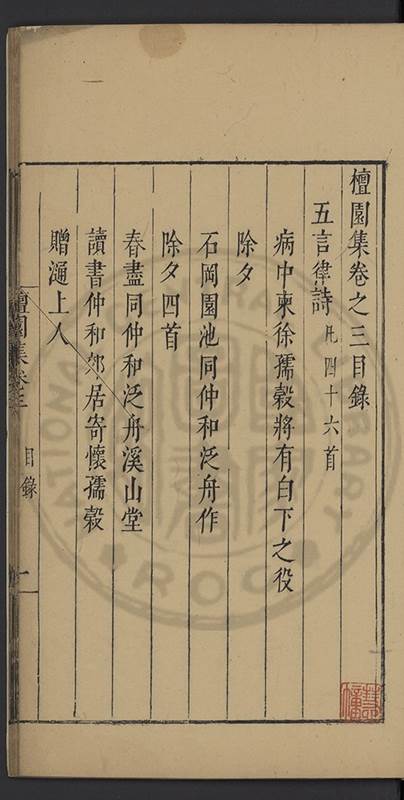 檀園集卷之三目錄
五言律詩 凡四十六首
病中柬徐孺穀將有白下之役
除夕
石岡園池同仲和泛舟作
除夕四首
春盡同仲和泛舟溪山堂
讀書仲和郊居寄懷孺穀
贈㴠上人
檀園集卷三 目錄 一